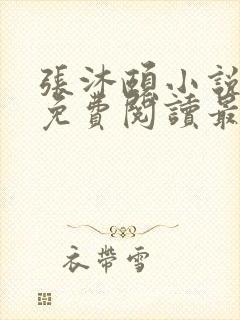 張沐頤小說
免費閱讀最
衣帶雪